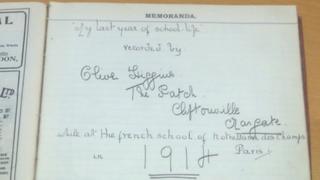 MEMORANDA.
My last year of school-life
recorded by
Olive Higgins
The Patch
Cliftonville
Margate.
while at the french school of Notre Dame des Champs
in Paris.
1914